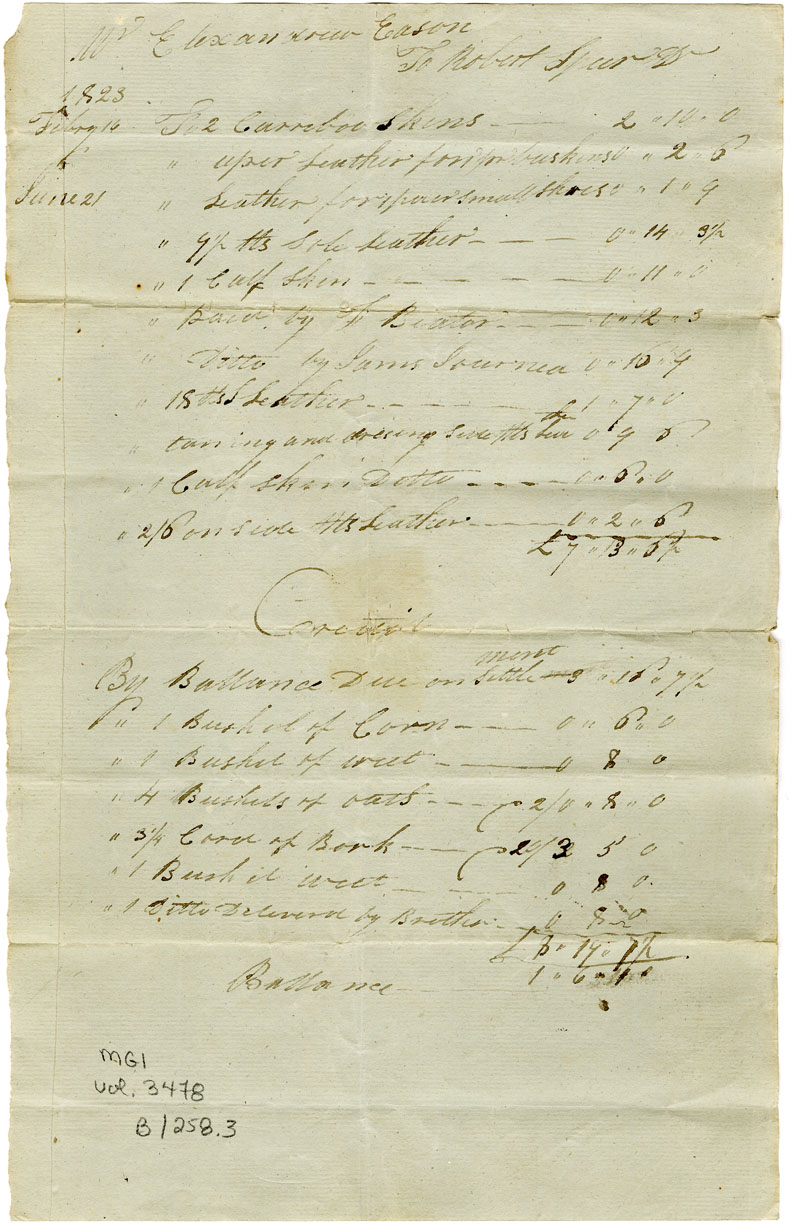 Mr Elixandrew Eason
To Robert Spur Dr
1823
Febry 16 To 2 Carreboo Skins 2 " 10 " 0
" " uper Leather for 1 pr buskins 0 " 2 " 6
June 21 " Leather for 1 pair small Shoes 0 " 1 " 9
" 9½ lbs Sole Leather 0 " 14 " 3½
" 1 Calf Skin 0 " 11 " 0
" Paid by 0 " 12 " 3
" Ditto by Jams Journea 0 " 16 " 9
" 18 lbs S Leather 1 " 7 " 0
" taning and dresing Side 0 9 6
" 1 Calf Skin Ditto 0 " 6 " 0
" 2/6 on Side Leather 0 " 2 " 6
£ 7 " 13 " 6½
Credit
By Ballance Due on Settlement 3 " 16 " 7½
" 1 Bushel of Corn 0 " 6 " 0
" 1 Bushel of weet 0 8 0
" 4 Bushels of oats 2/ 0 " 8 " 0
" 3¼ Cord of Bark 20/ 3 5 0
" 1 Bushel weet 0 8 0
" 1 Ditto Deliverd by Brother 0 8 0
£
Ballance 1 " 6 " 1
MG1
vol. 3478
B/258.3